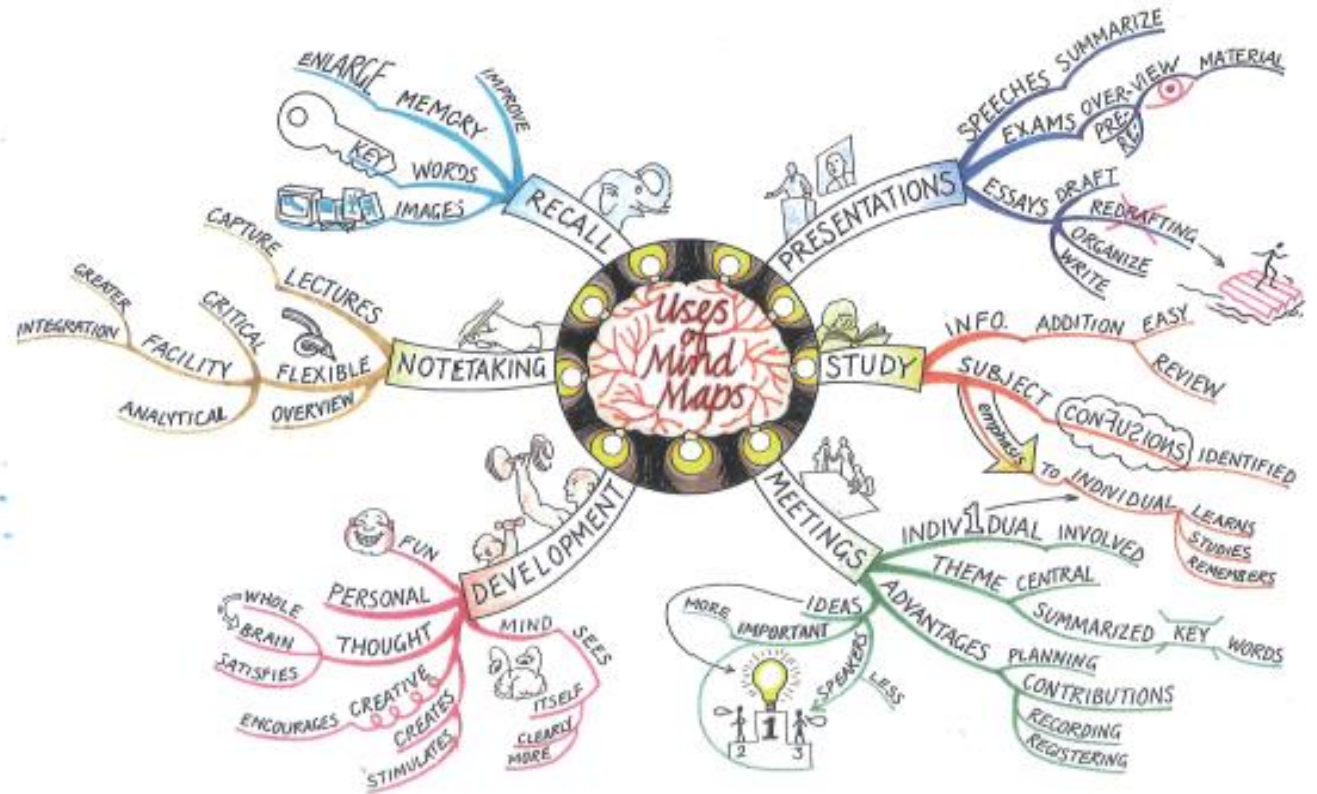 Uses
of
Mind
Maps
RECALL
IMPROVE
MEMORY
ENLARGE
KEY WORDS
IMAGES
PRESENTATIONS
SPEECHES SUMMARIZE
EXAMS OVER-VIEW MATERIAL
PRE-
RE-
ESSAYS DRAFT
REDRAFTING
ORGANIZE
WRITE
STUDY
INFO. ADDITION EASY
REVIEW
SUBJECT CONFUSIONS IDENTIFIED
emphasis
TO INDIVIDUAL LEARNS
STUDIES
REMEMBERS
MEETINGS
INDIV1DUAL INVOLVED
THEME CENTRAL
SUMMARIZED KEY WORDS
ADVANTAGES PLANNING
CONTRIBUTIONS
RECORDING
REGISTERING
IDEAS
MORE IMPORTANT
SPEAKERS LESS
1
2 3
DEVELOPMENT
FUN
PERSONAL
THOUGHT
WHOLE
BRAIN
SATISFIES
CREATIVE
ENCOURAGES
CREATES
STIMULATES
MIND SEES
ITSELF
CLEARLY
MORE
NOTETAKING
LECTURES
CAPTURE
FLEXIBLE
CRITICAL
FACILITY
GREATER
INTEGRATION
ANALYTICAL
OVERVIEW